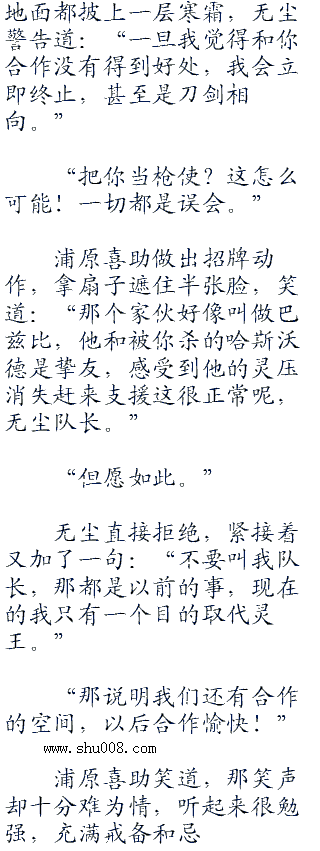 地面都披上一层寒霜，无尘
警告道：“一旦我觉得和你
合作没有得到好处，我会立
即终止，甚至是刀剑相
向。”
“把你当枪使？这怎么
可能！一切都是误会。”
浦原喜助做出招牌动
作，拿扇子遮住半张脸，笑
道：“那个家伙好像叫做巴
兹比，他和被你杀的哈斯沃
德是挚友，感受到他的灵压
消失赶来支援这很正常呢，
无尘队长。”
“但愿如此。”
无尘直接拒绝，紧接着
又加了一句：“不要叫我队
长，那都是以前的事，现在
的我只有一个目的取代灵
王。”
“那说明我们还有合作
的空间，以后合作愉快！”
www.shu008.com
浦原喜助笑道，那笑声
却十分难为情，听起来很勉
强，充满戒备和忌